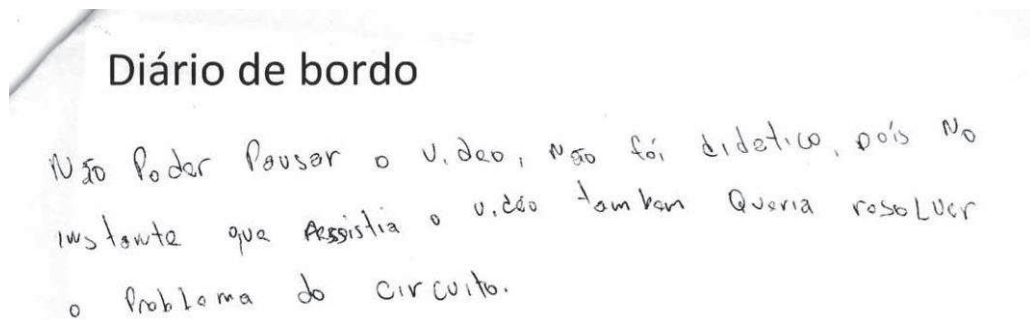 Diário de bordo
Não Poder Pausar o video, Não foi didatico, pois No
instante que Assistia o video tambem Queria resolver
o Problema do circuito.